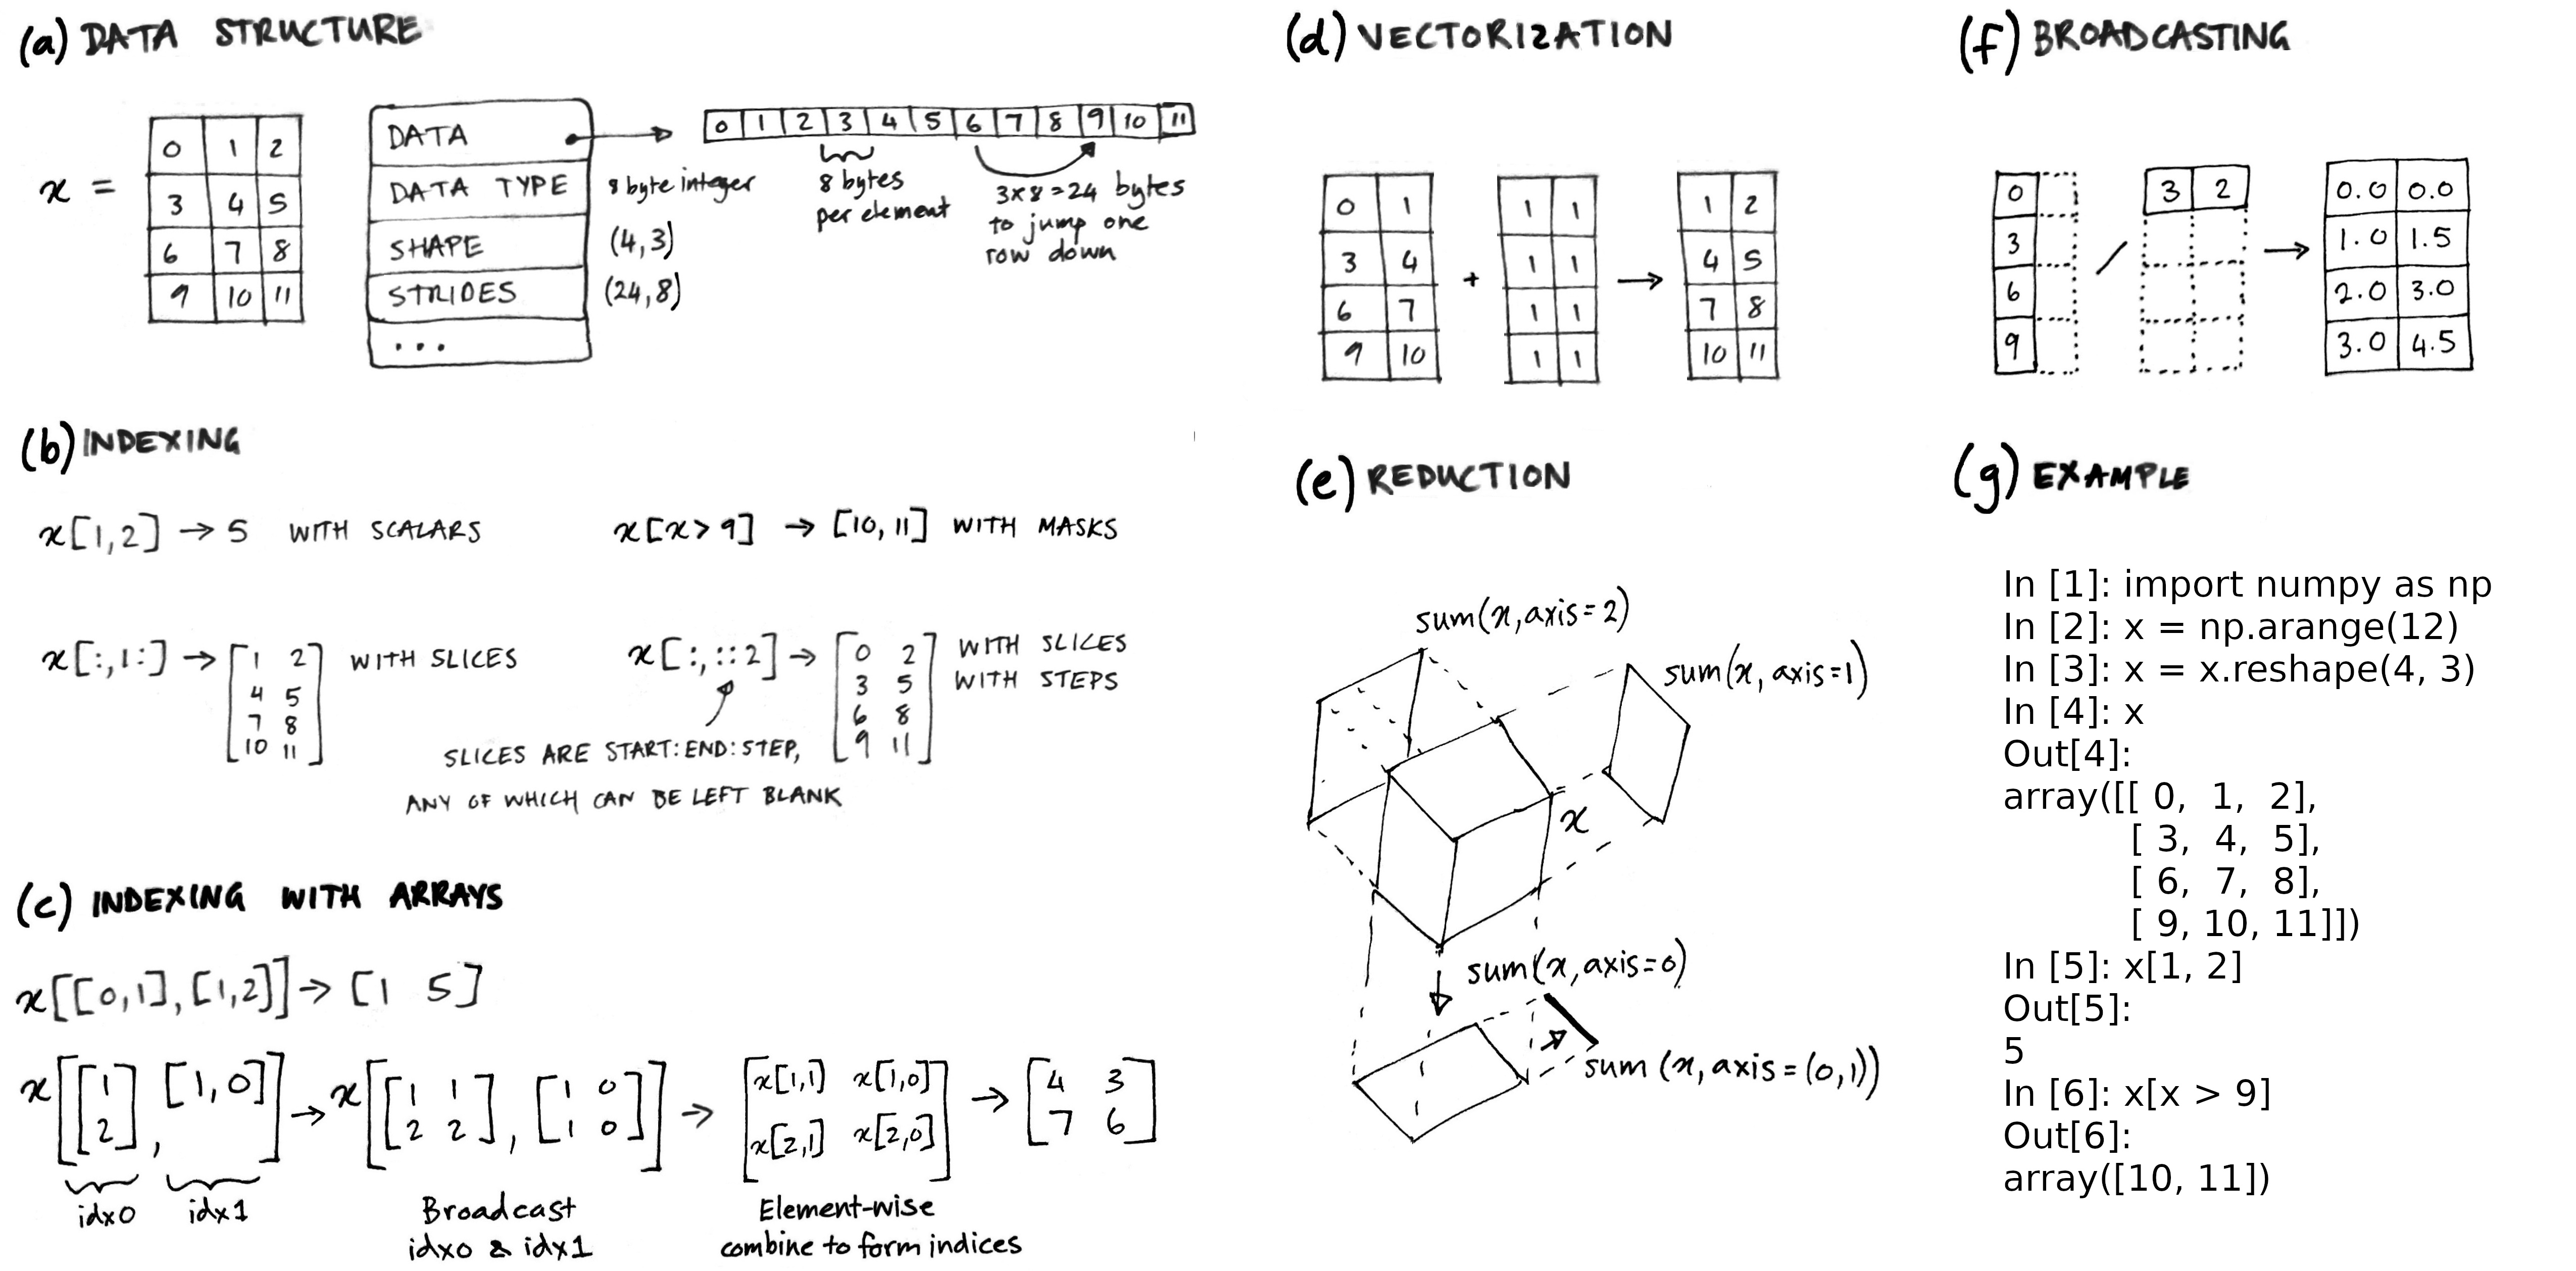 (a) DATA STRUCTURE
x =
0 1 2
3 4 5
6 7 8
9 10 11
DATA
DATA TYPE
SHAPE
STRIDES
...
8 byte integer
(4,3)
(24,8)
0 1 2 3 4 5 6 7 8 9 10 11
8 bytes
per element
3x8=24 bytes
to jump one
row down
(b) INDEXING
x[1,2] → 5 WITH SCALARS
x[x> 9] → [10, 11] WITH MASKS
x[:,1:] → [1 2 WITH SLICES
4 5
7 8
10 11]
x[:,::2] → [0 2
3 5
6 8
9 11]
WITH SLICES
WITH STEPS
SLICES ARE START:END:STEP,
ANY OF WHICH CAN BE LEFT BLANK
(c) INDEXING WITH ARRAYS
x[[0,1],[1,2]] → [1 5]
x[[1 2], [1,0]] → x[[1 1 2 2], [1 0 1 0]] → [x[1,1] x[1,0] x[2,1] x[2,0]] → [4 3 7 6]
idx0 idx1
Broadcast
idx0 & idx1
Element-wise
combine to form indices
(d) VECTORIZATION
0 1
3 4
6 7
9 10
+
1 1
1 1
1 1
1 1
→
1 2
4 5
7 8
10 11
(e) REDUCTION
sum(x,axis=2)
sum(x, axis=1)
x
sum(x,axis=0)
sum (x, axis=(0,1))
(f) BROADCASTING
0
3
6
9
/
3 2
→
0.0 0.0
1.0 1.5
2.0 3.0
3.0 4.5
(g) EXAMPLE
In [1]: import numpy as np
In [2]: x = np.arange(12)
In [3]: x = x.reshape(4, 3)
In [4]: x
Out[4]:
array([[ 0, 1, 2],
[ 3, 4, 5],
[ 6, 7, 8],
[ 9, 10, 11]])
In [5]: x[1, 2]
Out[5]:
5
In [6]: x[x > 9]
Out[6]:
array([10, 11])